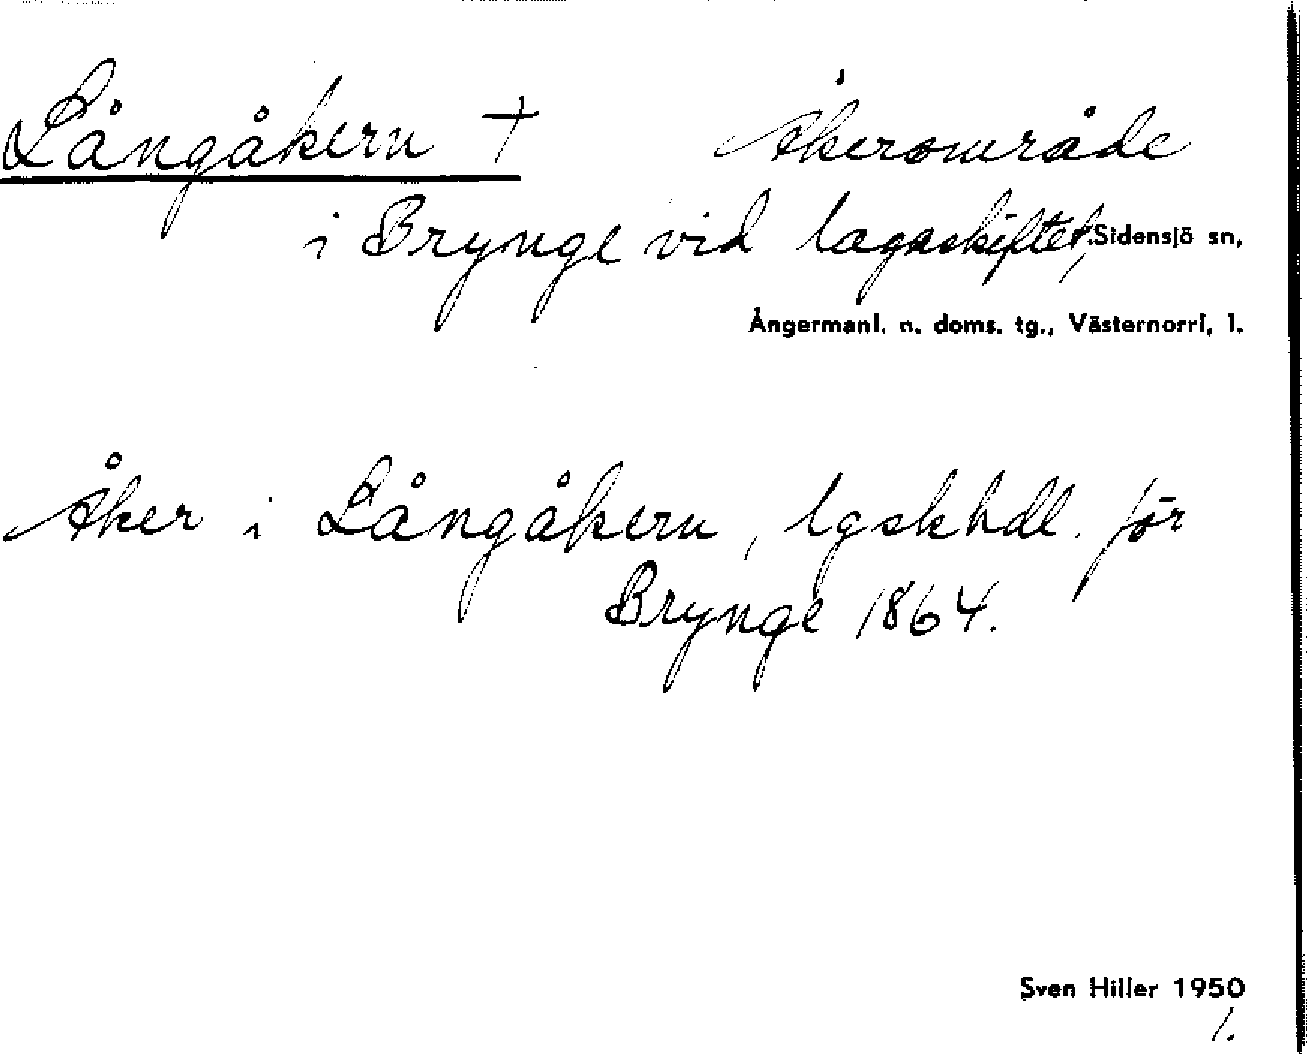 Långåkern † Åkerområde
i Brynge vid lagaskiftet, Sidensjö sn,
Ångermanl. n. doms. tg., Västernorrl, l.
Åker i Långåkern, lgskhdl. för
Brynge 1864.
Sven Hiller 1950
1.